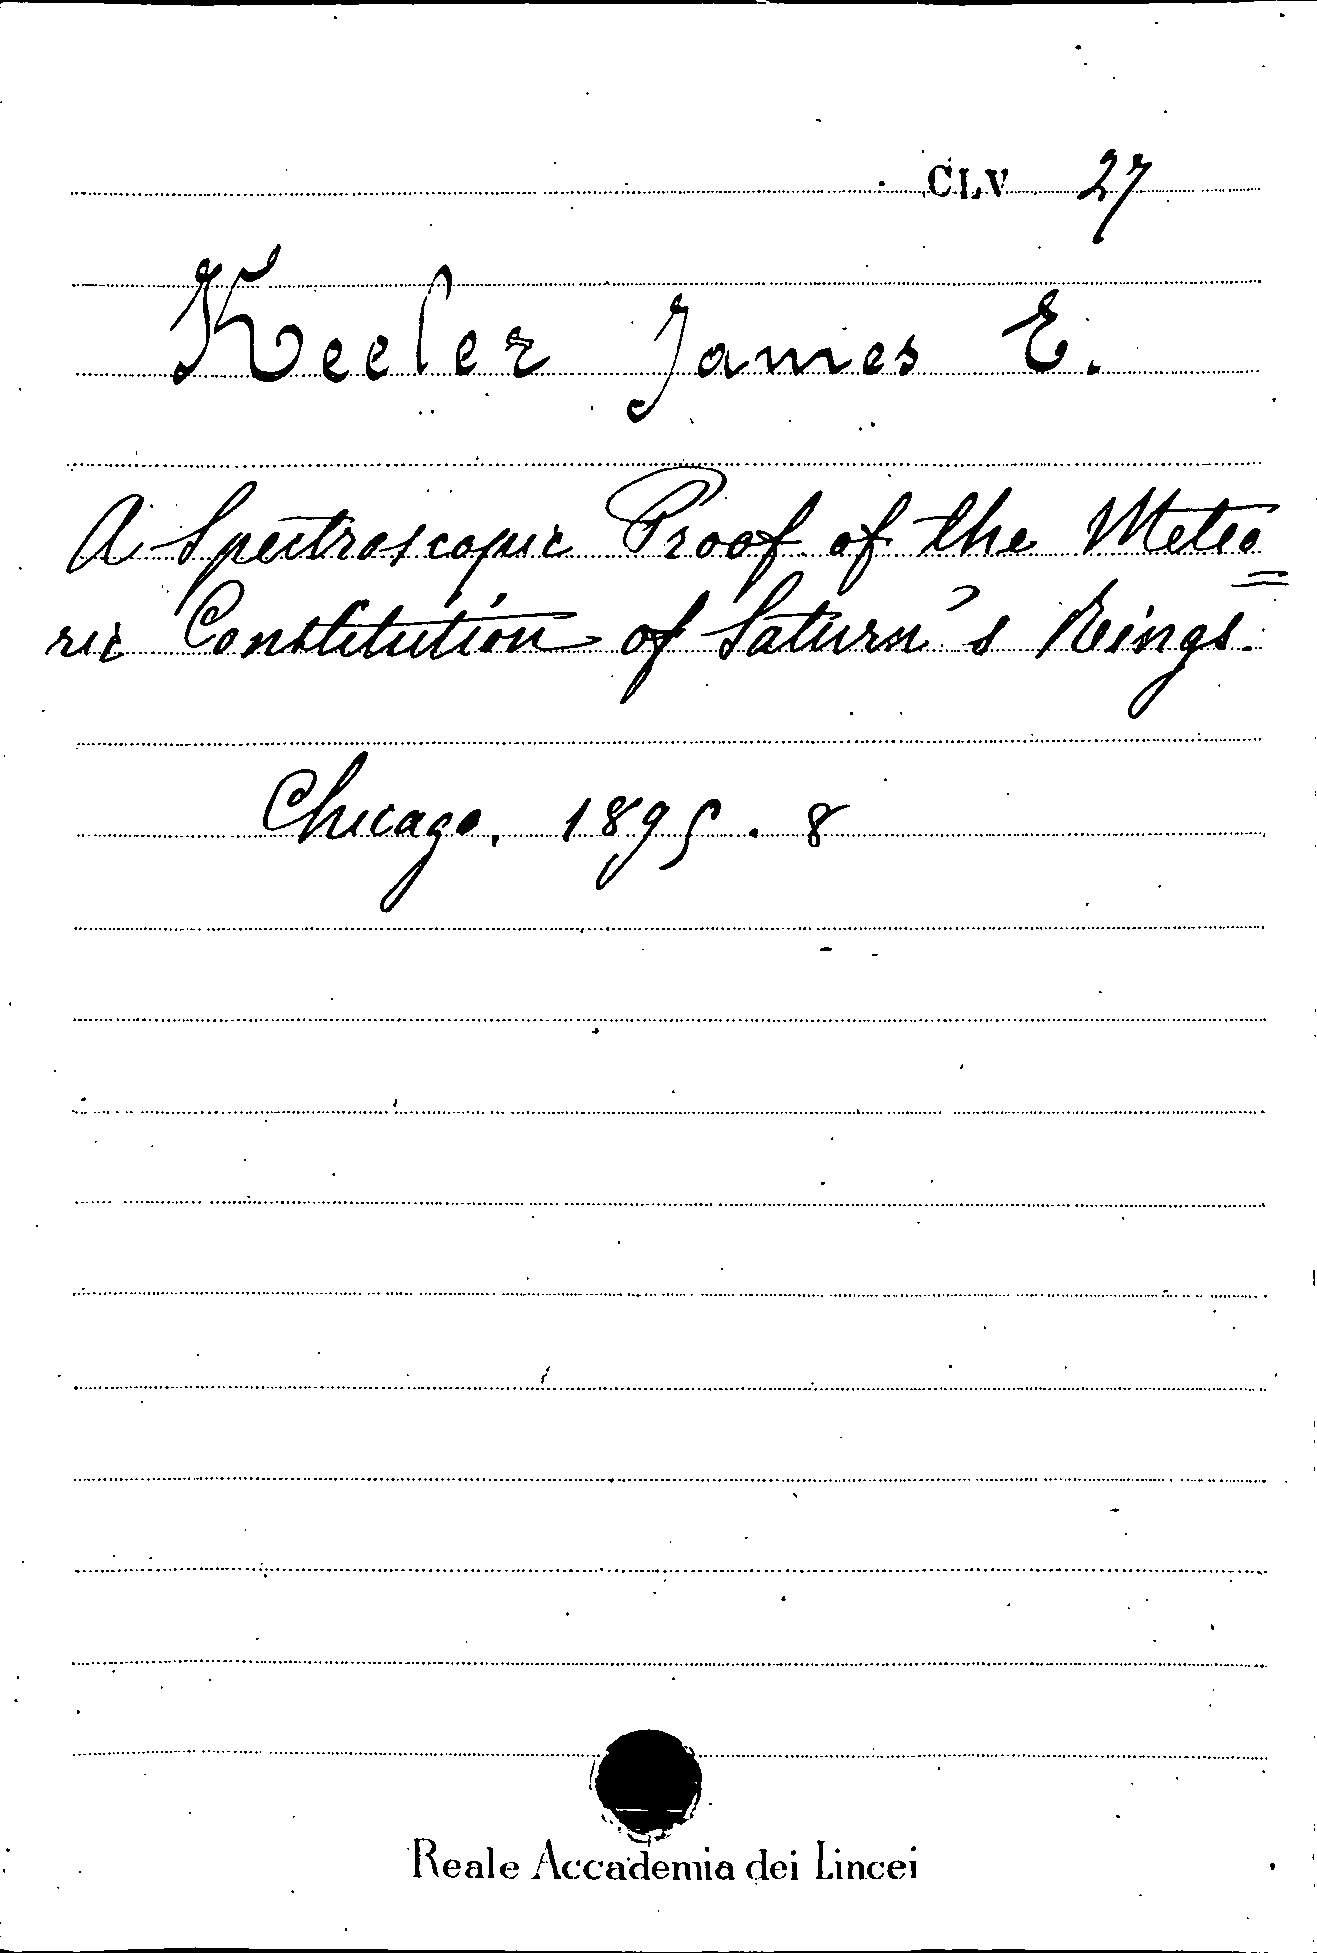 CLV 27
Keeler James E.
A Spectroscopic Proof of the Meteo=
ric Constitution of Saturn's Rings.
Chicago, 1895. 8
Reale Accademia dei Lincei